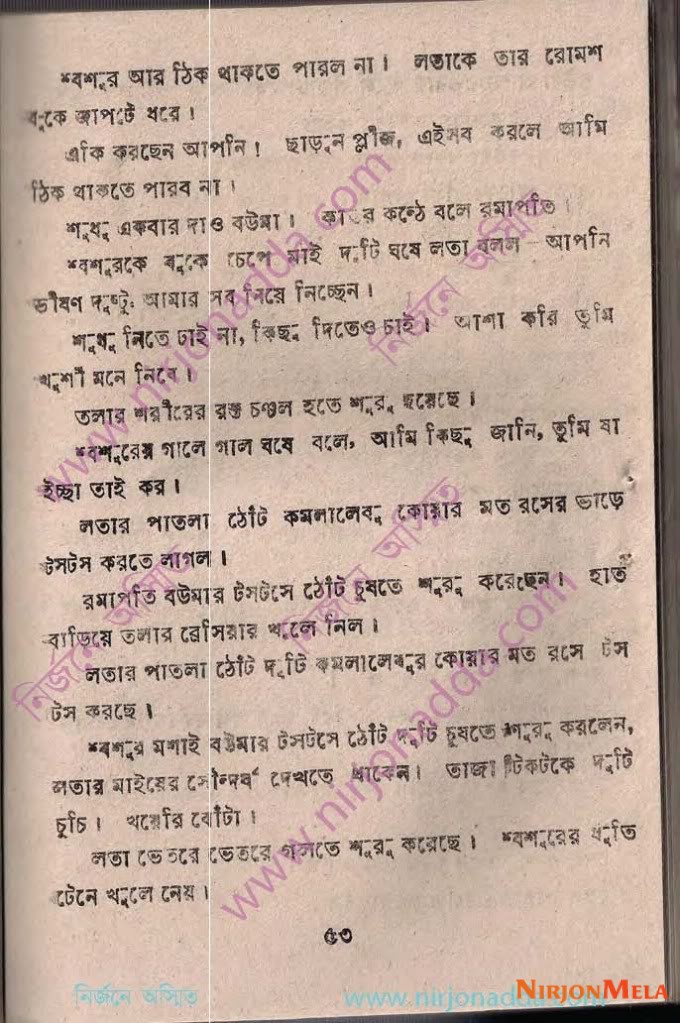 শ্বশুর আর ঠিক থাকতে পারল না। লতাকে তার রোমশ
বুকে জাপটে ধরে।
একি করছেন আপনি! ছাড়ুন প্লীজ, এইসব করলে আমি
ঠিক থাকতে পারব না।
শুধু একবার দাও বউমা। কাতর কন্ঠে বলে রমাপতি।
শ্বশুরকে বুকে চেপে মাই দুটি ঘষে লতা বলল আপনি
ভীষণ দুষ্টু, আমার সব নিয়ে নিচ্ছেন।
শুধু নিতে চাই না, কিছু দিতেও চাই। আশা করি তুমি
খুশী মনে নিবে।
তলার শরীরের রক্ত চঞ্চল হতে শুরু হয়েছে।
শ্বশুরের গালে গাল ঘষে বলে, আমি কিছু জানি, তুমি যা
ইচ্ছা তাই কর।
লতার পাতলা ঠোঁট কমলালেবু কোয়ার মত রসের ভাড়ে
টসটস করতে লাগল।
রমাপতি বউমার টসটসে ঠোঁট চুষতে শুরু করেছেন। হাত
বাড়িয়ে তলার ব্রেসিয়ার খুলে নিল।
লতার পাতলা ঠোঁট দুটি কমলালেবুর কোয়ার মত রসে টস
টস করছে।
শ্বশুর মশাই বউমার টসটসে ঠোঁট দুটি চুষতে শুরু করলেন,
লতার মাইয়ের সৌন্দর্য দেখতে থাকেন। তাজা টিকটকে দুটি
চুচি। খয়েরি বোঁটা।
লতা ভেতরে ভেতরে গলতে শুরু করেছে। শ্বশুরের ধুতি
টেনে খুলে নেয়।
৫৩
নির্জনে অস্মিত
www.nirjonadda.com
NIRJONMELA
www.nirjonadda.com
নির্জনে অস্মিত
নির্জনে অস্মিত
নির্জনে অস্মিত
www.nirjonadda.com